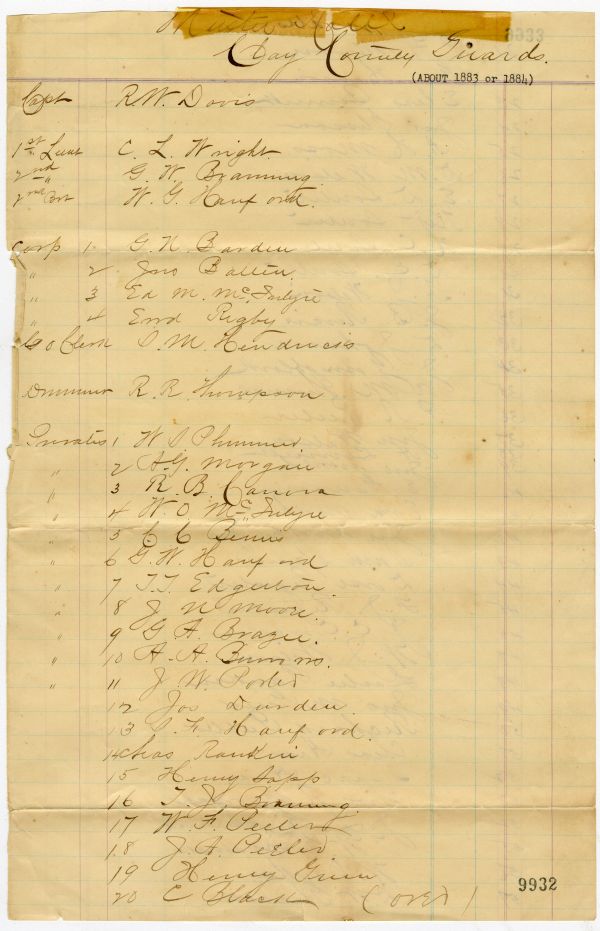 Muster Roll
Clay County Guards.
(ABOUT 1883 or 1884)
Capt R. W. Davis
1st Lieut C. L. Wright
2nd " G. W. Branning
2nd Bvt W. G. Hanford.
Corp 1 G. N. Barden
" 2 Jno Balten
" 3 Ed M. McIntyre
" 4 Rigby
Co Clerk S. M. Hendricks
Drummer R. R. Thompson
Privates 1 W S Plummer
" 2 A. G. Morgan
" 3 R. B. Canova
" 4 W. O. McIntyre
" 5 C C Bemis
" 6 G. W. Hanford
" 7 T. T. Edgerton.
" 8 J. N. Moore.
" 9 G. A. Brazee.
" 10 A. A. Burrows.
" 11 J. W. Porter
12 Jos Durden
13 S. F. Hanford.
14 Chas Rankin
15 Henry Sapp
16 T. J. Branning
17 W. F. Peeler
18 J. A. Peeler
19 Henry Green
20 C Black (over)
9932